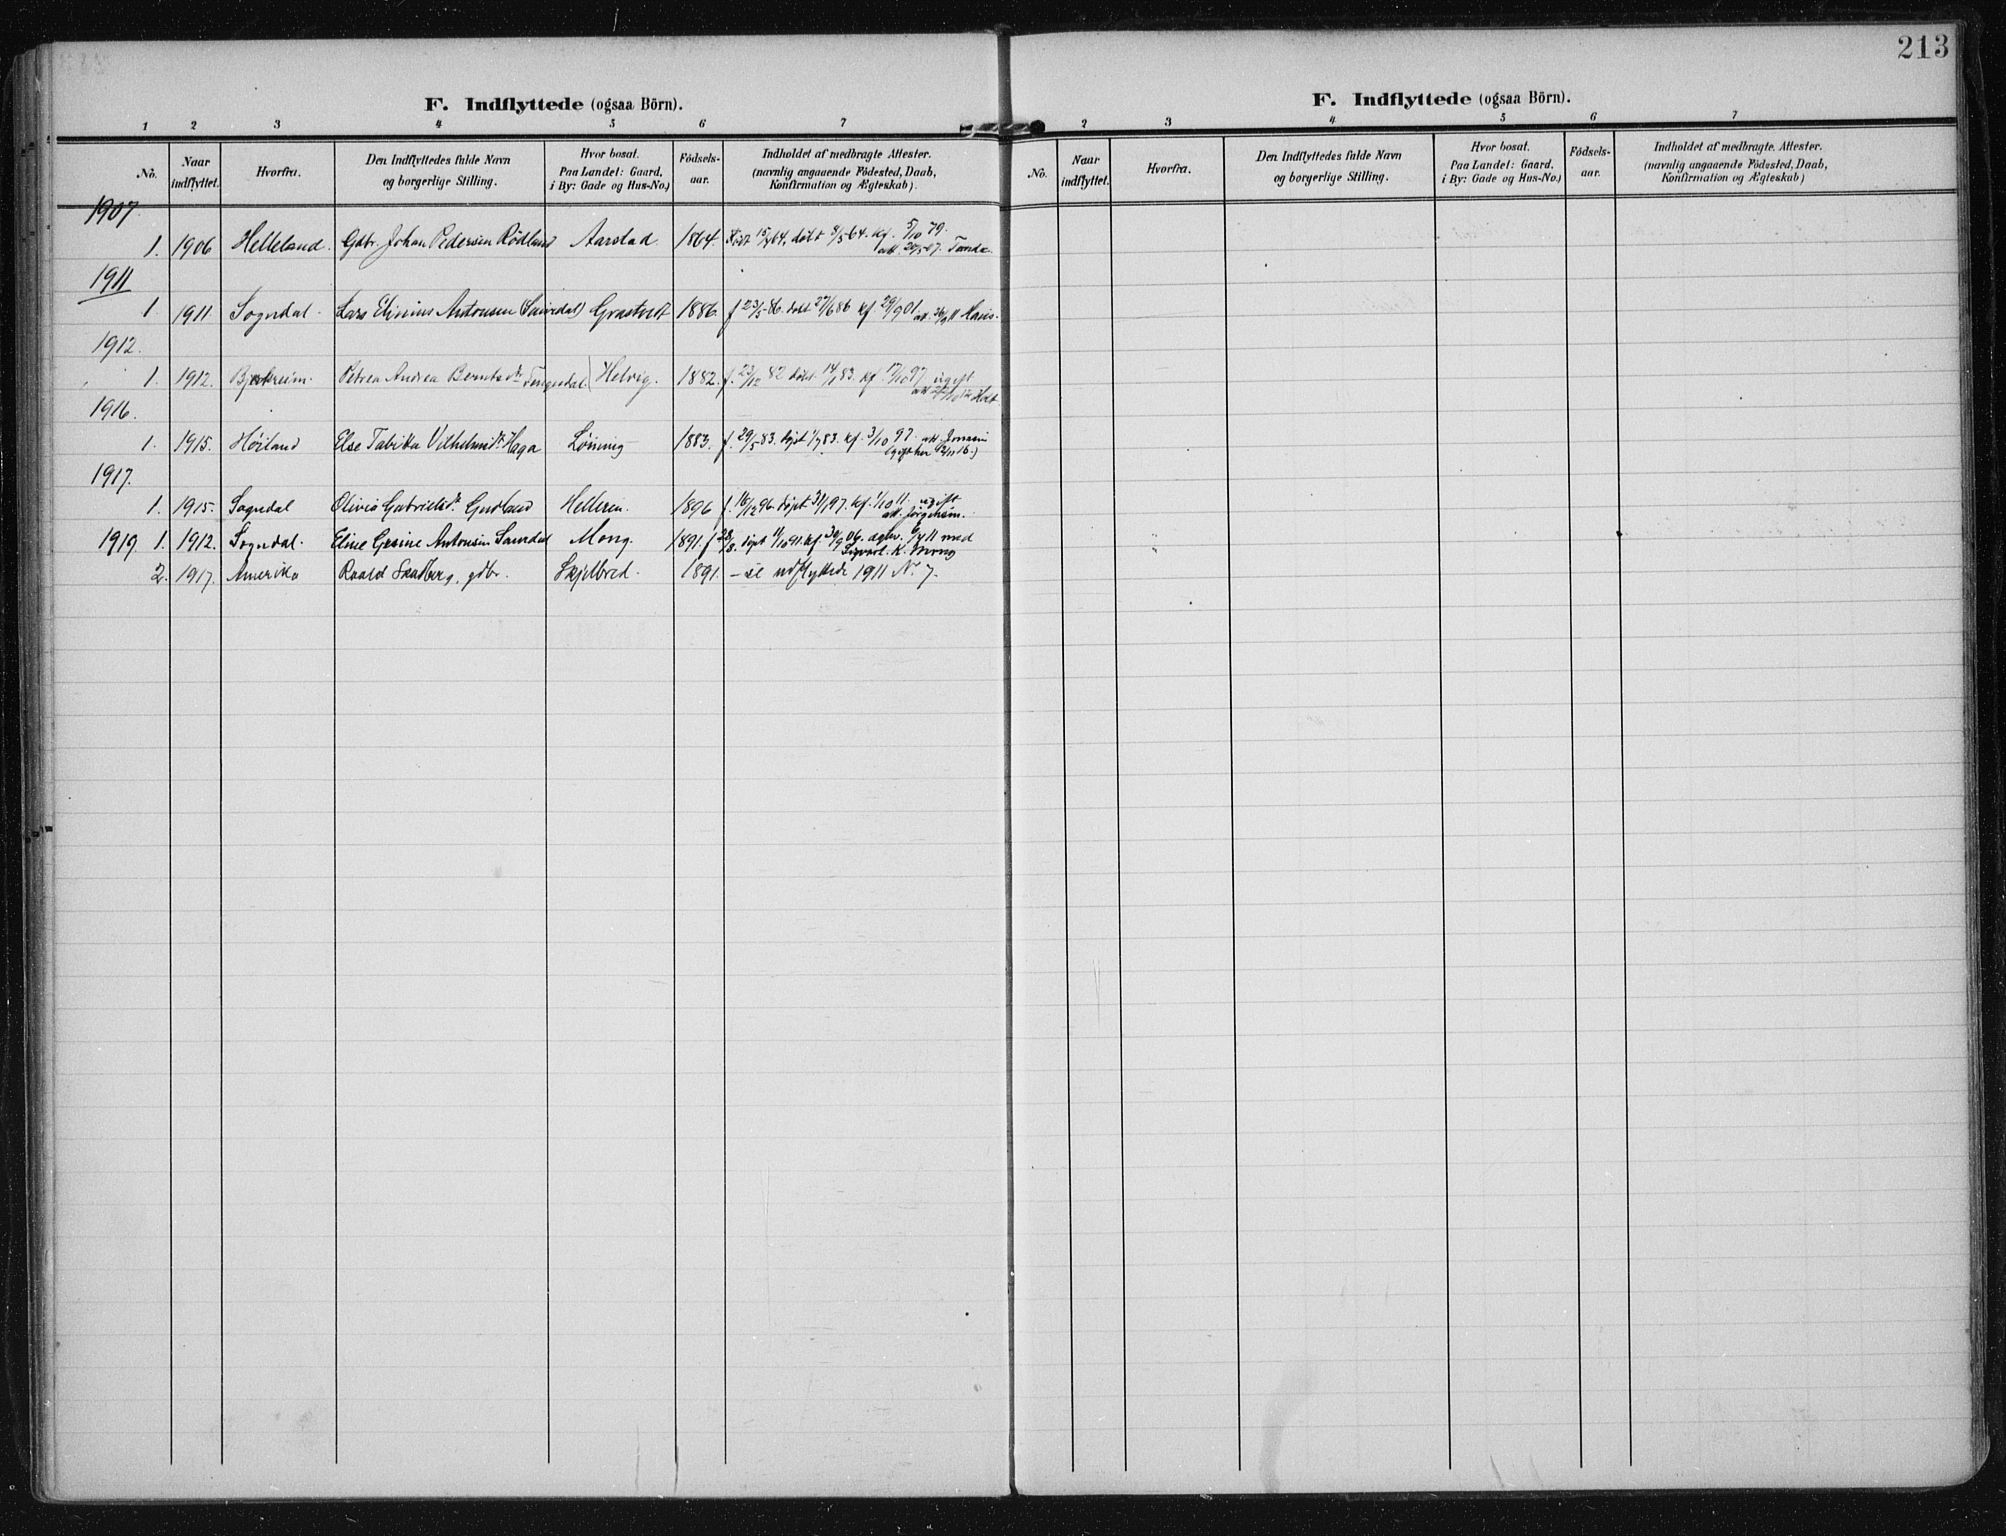 213
F. Indflyttede (ogsaa Börn).
1 2 3 4 5 6 7
No. Naar indflyttet. Hvorfra. Den Indflyttedes fulde Navn og borgerlige Stilling. Hvor bosat. Paa Landet: Gaard, i By: Gade og Hus-No.) Födsels-aar. Indholdet af medbragte Attester. (navnlig angaaende Födested, Daab, Konfirmation og Ægteskab).
1907
1. 1906 Helleland. Gdbr. Johan Pedersen Rödland Aarstad 1864. Födt 15/4 64, döbt 8/5 64. kf. 5/10 79.
att. 20/5 07. Tandx.
1911
1. 1911. Sogndal. Lars Antonsen Grastveit 1886. f 23/5 86. döbt 27/6 86 kf 29/9 01
1912.
1. 1912. Bjerkreim. Petrea Andrea Berntsdtr Tengesdal) Helvig. 1882. f. 23/12 82 döbt 14/1 83. kf. 17/10 97 ugift
1916.
1. 1915. Höiland Else Tabitha Vilhelmsdtr Haga Lönning 1883. f. 29/5 83. döpt 1/7 83. kf. 3/10 97. att. Jonassen
(gift her 12/11 16.)
1917.
1. 1915. Sogndal Olivia Gabrielsdtr Gudland Helleren. 1896 f. 16/12 96. döpt 31/1 97. kf. 1/10 11. ugift
att. Jörgensen.
1919 1. 1912. Sogndal. Eline Gesine Antonsen Mong. 1891. f 28/8. döpt 11/10 91. kf. 30/9 06. agtv. 6/4 11 med
Sigvart K. Mong
2. 1917. Amerika Roald Skadberg, gdbr. Skjelbred. 1891. – se udflyttede 1911 No 7.
F. Indflyttede (ogsaa Börn).
2 3 4 5 6 7
No. Naar indflyttet. Hvorfra. Den Indflyttedes fulde Navn og borgerlige Stilling. Hvor bosat. Paa Landet: Gaard, i By: Gade og Hus-No.) Födsels-aar. Indholdet af medbragte Attester. (navnlig angaaende Födested, Daab, Konfirmation og Ægteskab)